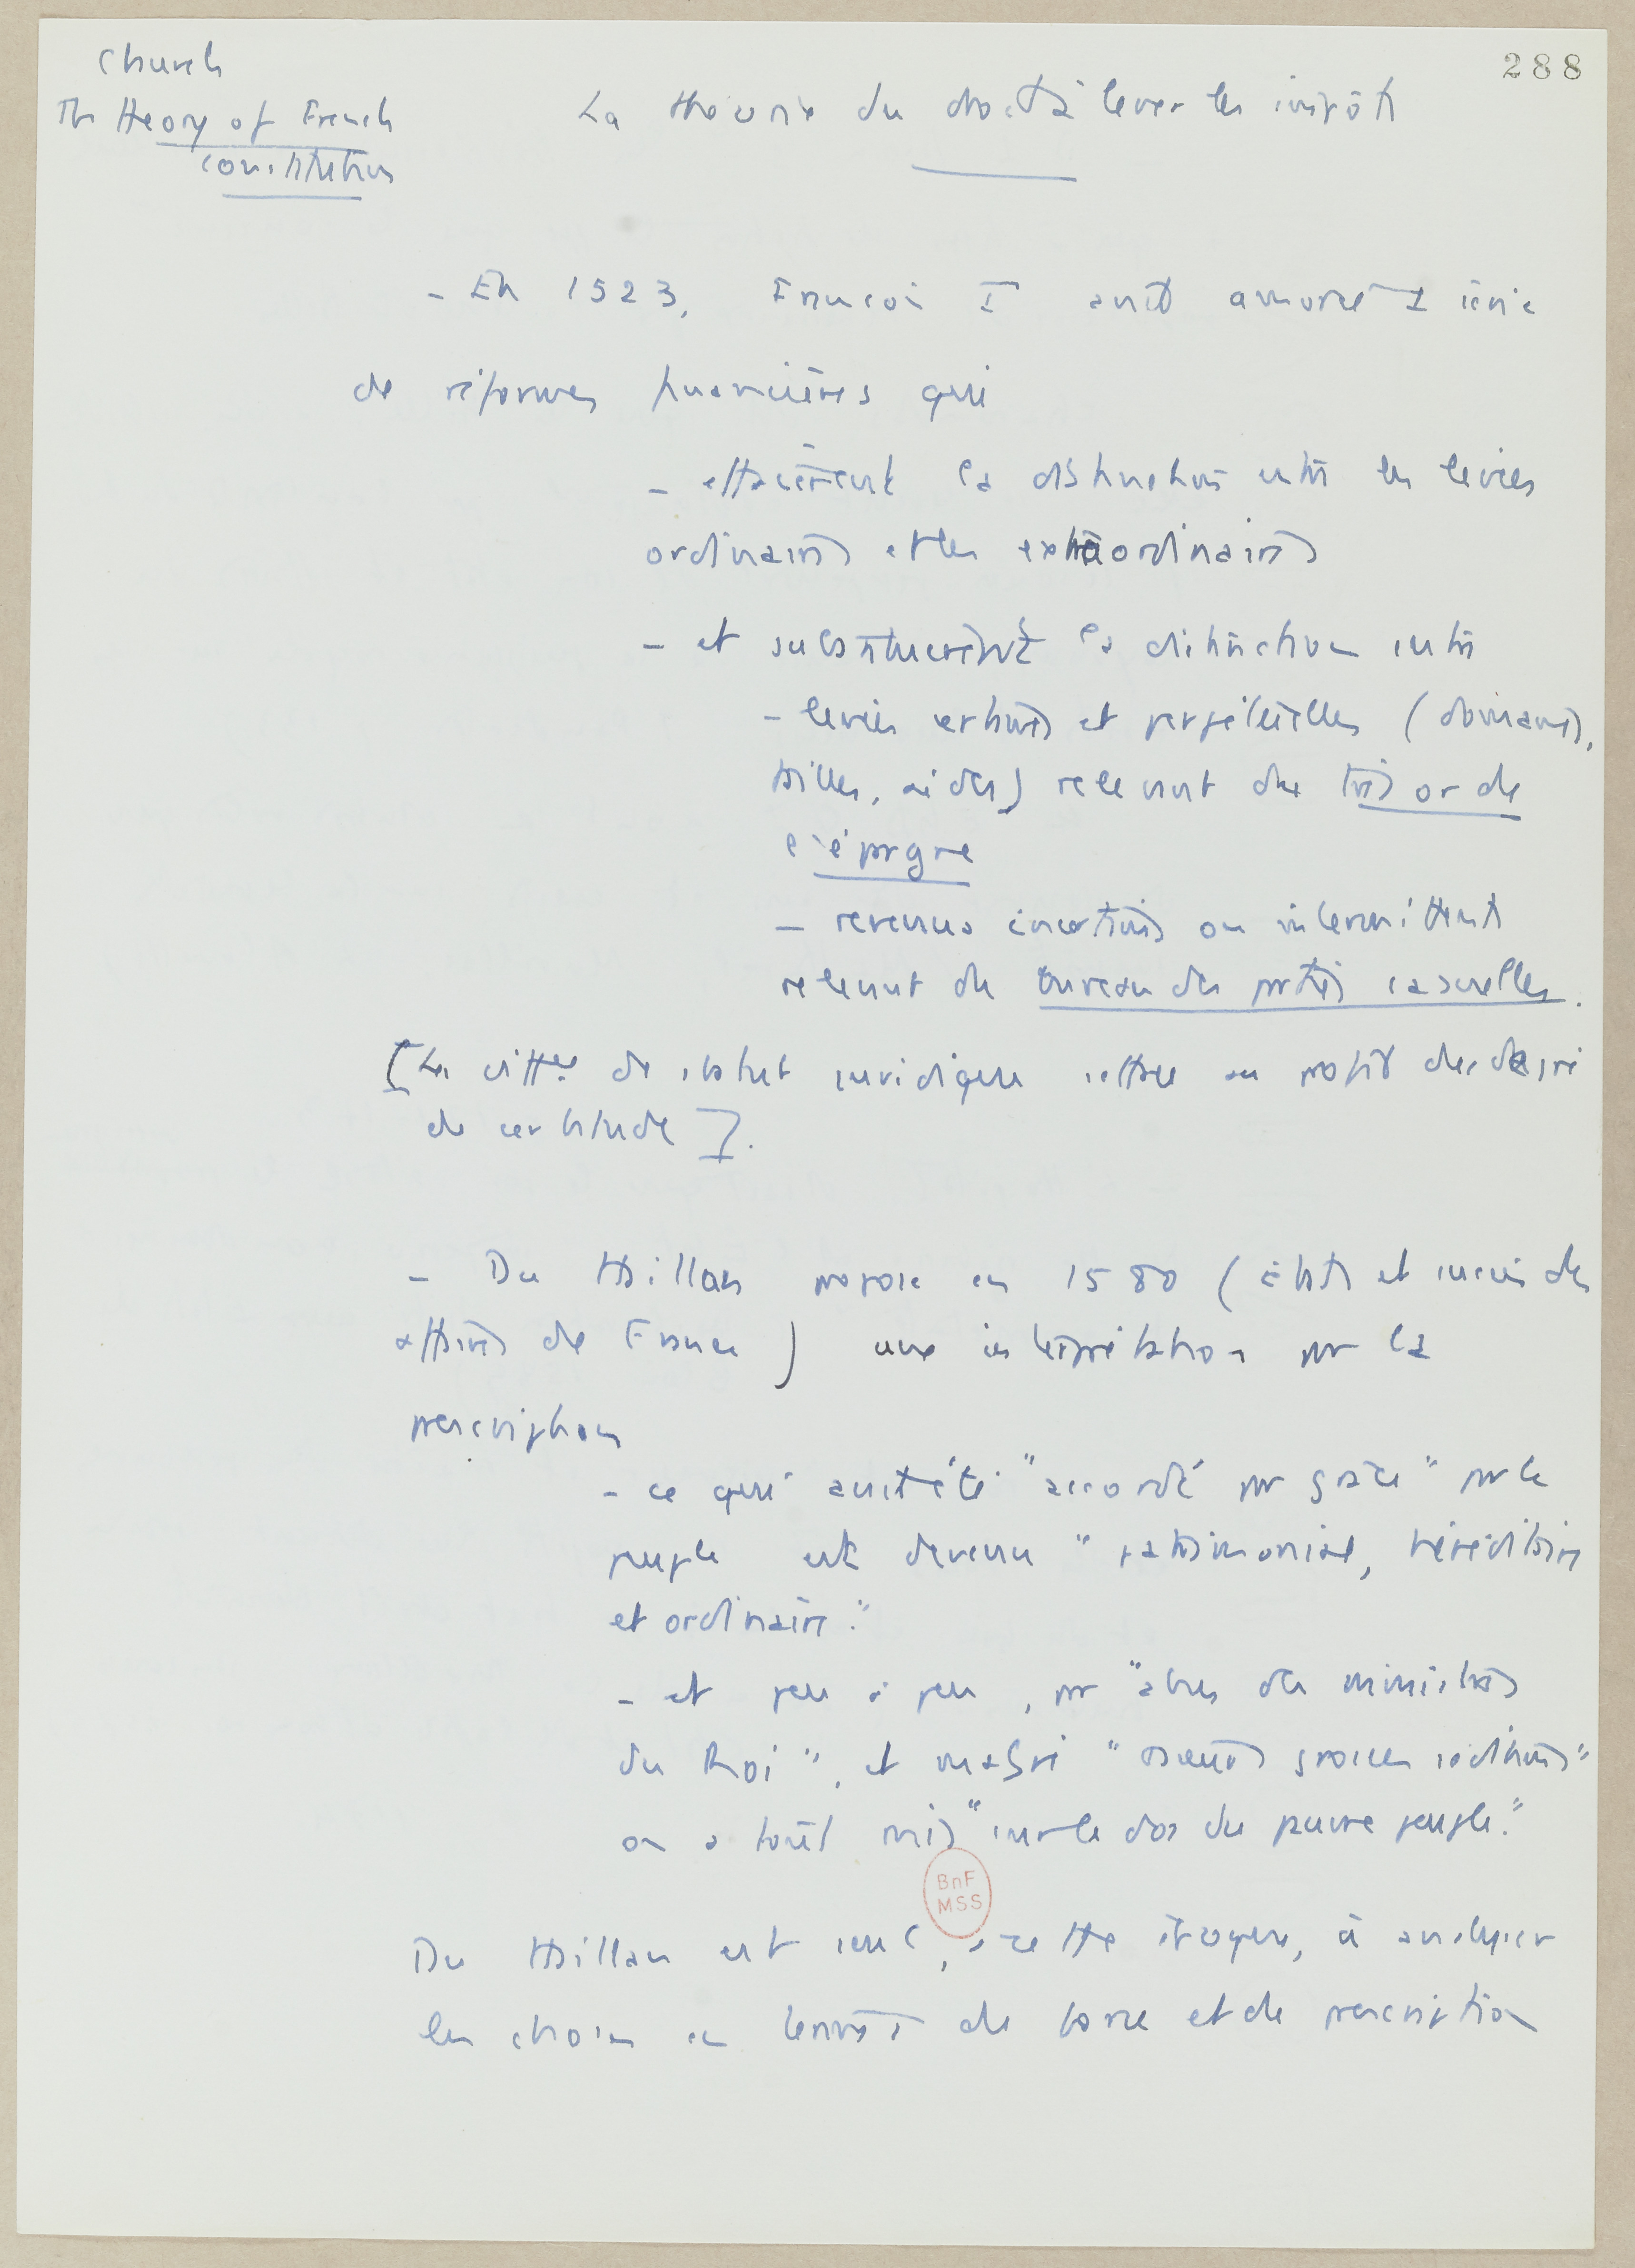 288
Church
The theory of French
constitution
La théorie du droit à lever les impôts
- En 1523, François I avait amorcé 1 série
de réformes financières qui
- effacèrent la distinction entre les levées
ordinaires et les extraordinaires
- et substituèrent la distinction entre
- levées certaines et perpétuelles (domaines,
tailles, aides) relevant du trésor de
l'épargne
- revenus incertains ou intermittents
relevant du bureau des parties casuelles.
[La différence de statut juridique s'efface au profit du
de certitude].
- Du Haillan propose en 1580 (états et succès des
affaires de France) une interprétation par la
prescription
- ce qui avait été "accordé par grâce" par le
peuple est devenu "patrimonial, héréditaire
et ordinaire".
- et peu à peu, par "abus des ministres
du Roi", et malgré "
on a tout mis "sur le dos du pauvre peuple."
BnF
MSS
Du Haillan est seul, à cette époque, à analyser
les choses en termes de force et de prescription